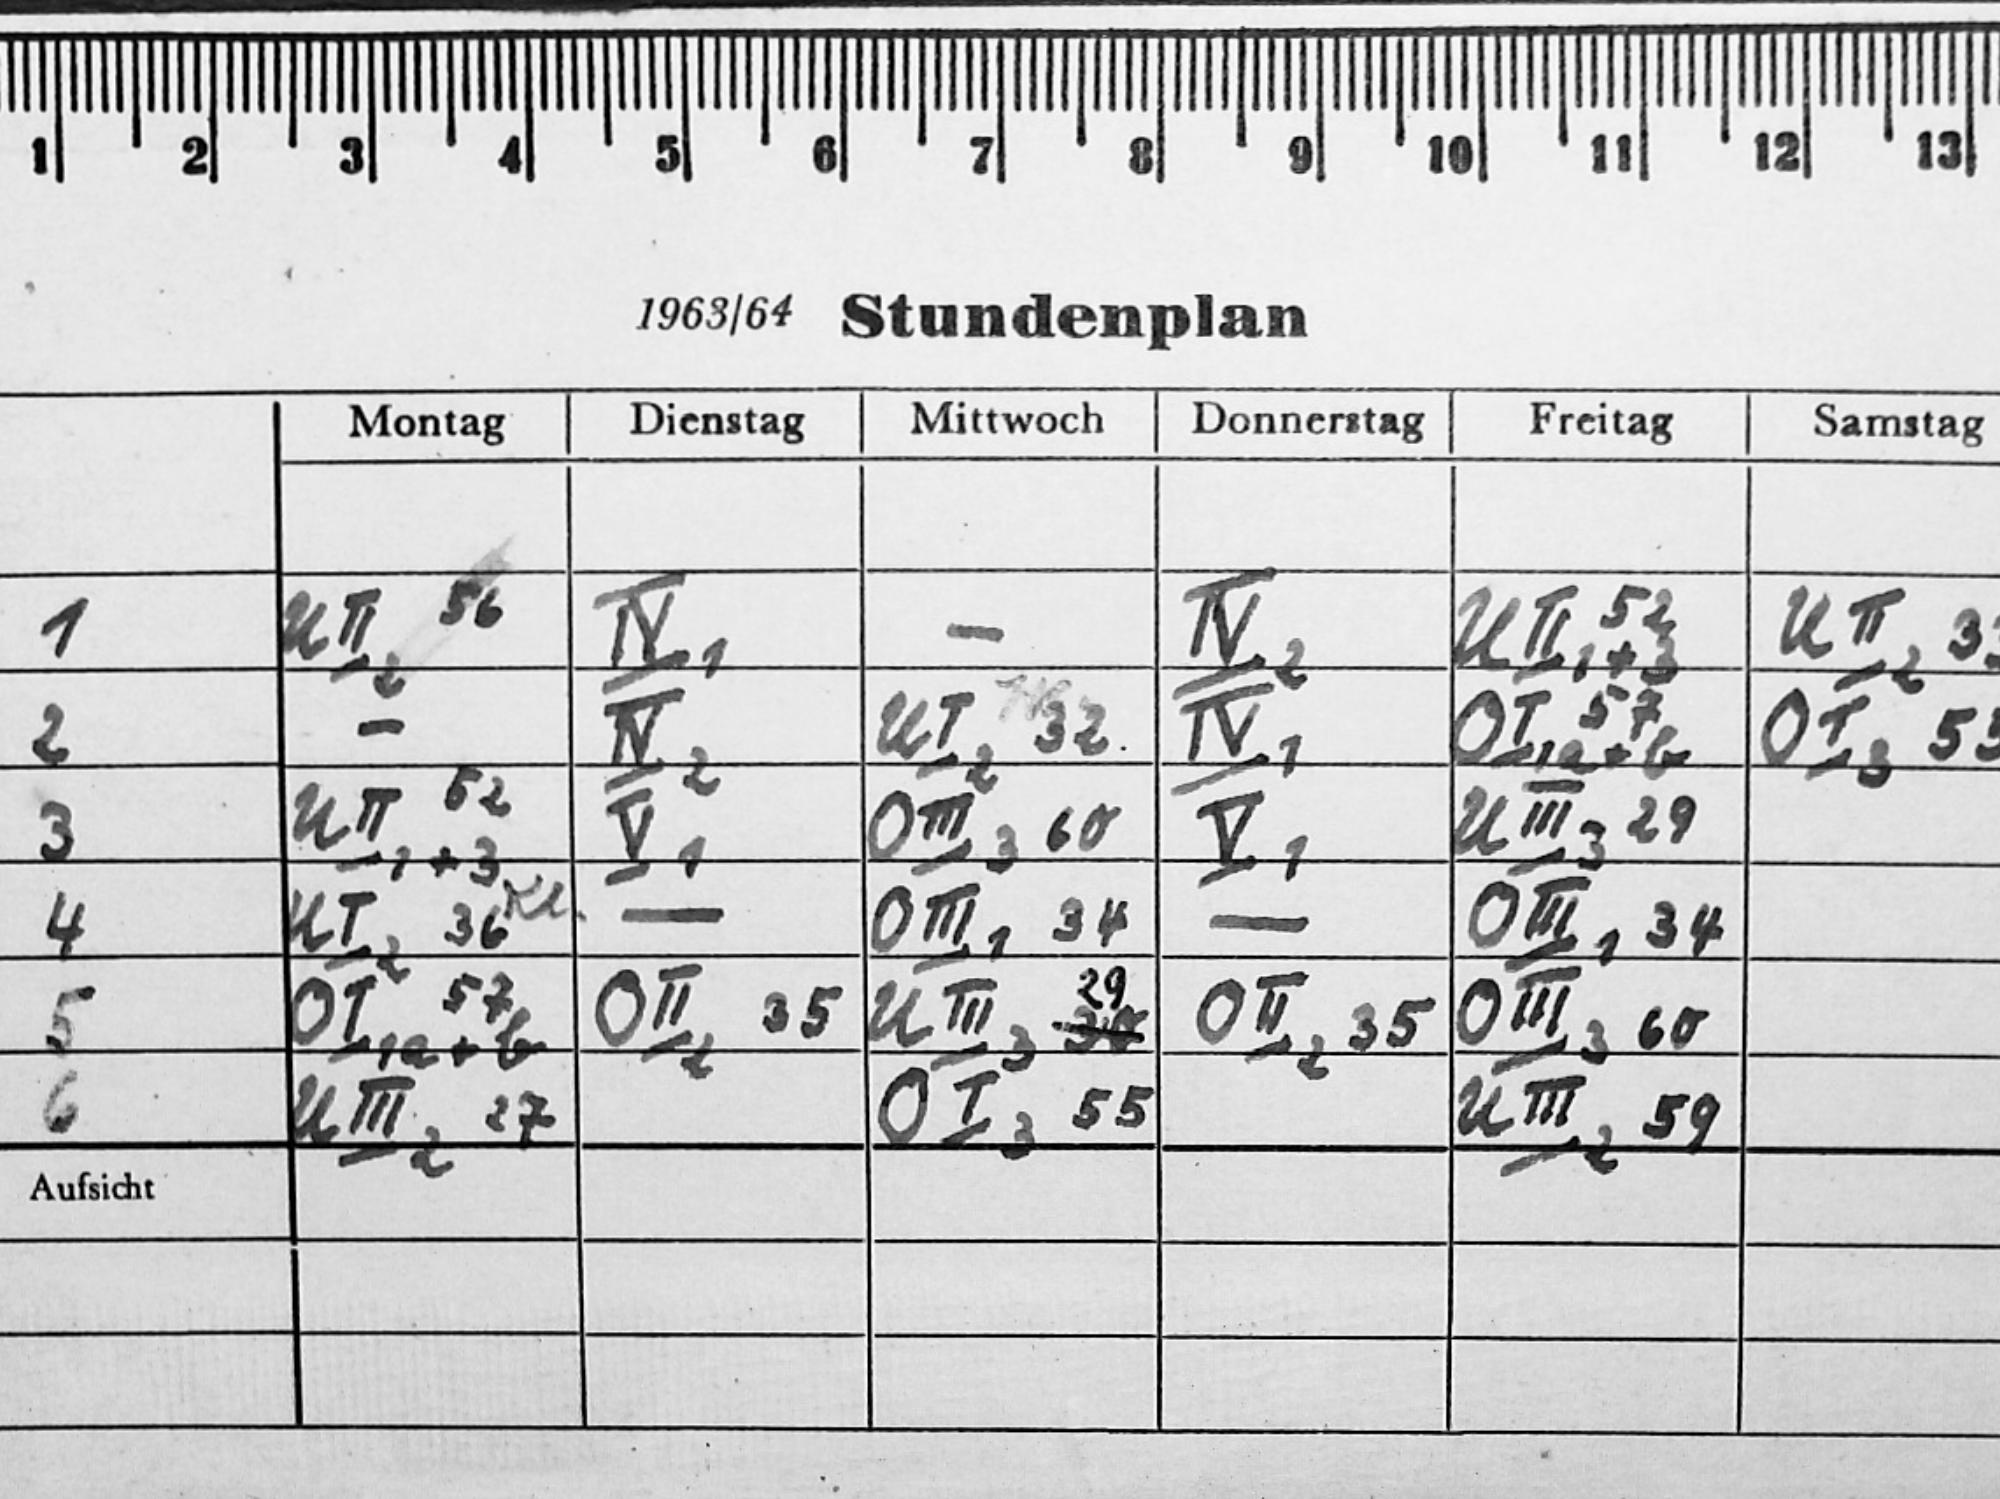 1 2 3 4 5 6 7 8 9 10 11 12 13
1963/64 Stundenplan
Montag Dienstag Mittwoch Donnerstag Freitag Samstag
1 UII2 56 IV1 — IV2 UII1+3 52 UII2
2 — IV2 UI2 32. IV1 OI1a+b 57 OI3
3 UII1+3 52 V1 OIII3 60 V1 UIII3 29
4 UI2 36 Kl. — OIII1 34 — OIII1 34
5 OI1a+b 57 OII2 35 UIII3 29 OII2 35 OIII3 60
6 UIII2 27 OI3 55 UIII2 59
Aufsicht